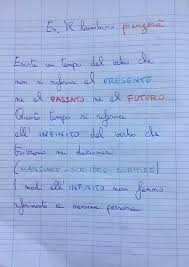 Es. Il bambino piangerà
Esiste un tempo del verbo che
non si riferisce al PRESENTE
né al PASSATO né al FUTURO
Questo tempo si riferisce
all'INFINITO del verbo che
troviamo nel dizionario
(MANGIARE - SCRIVERE - DORMIRE)
I modi all'INFINITO non fanno
riferimento a nessuna persona